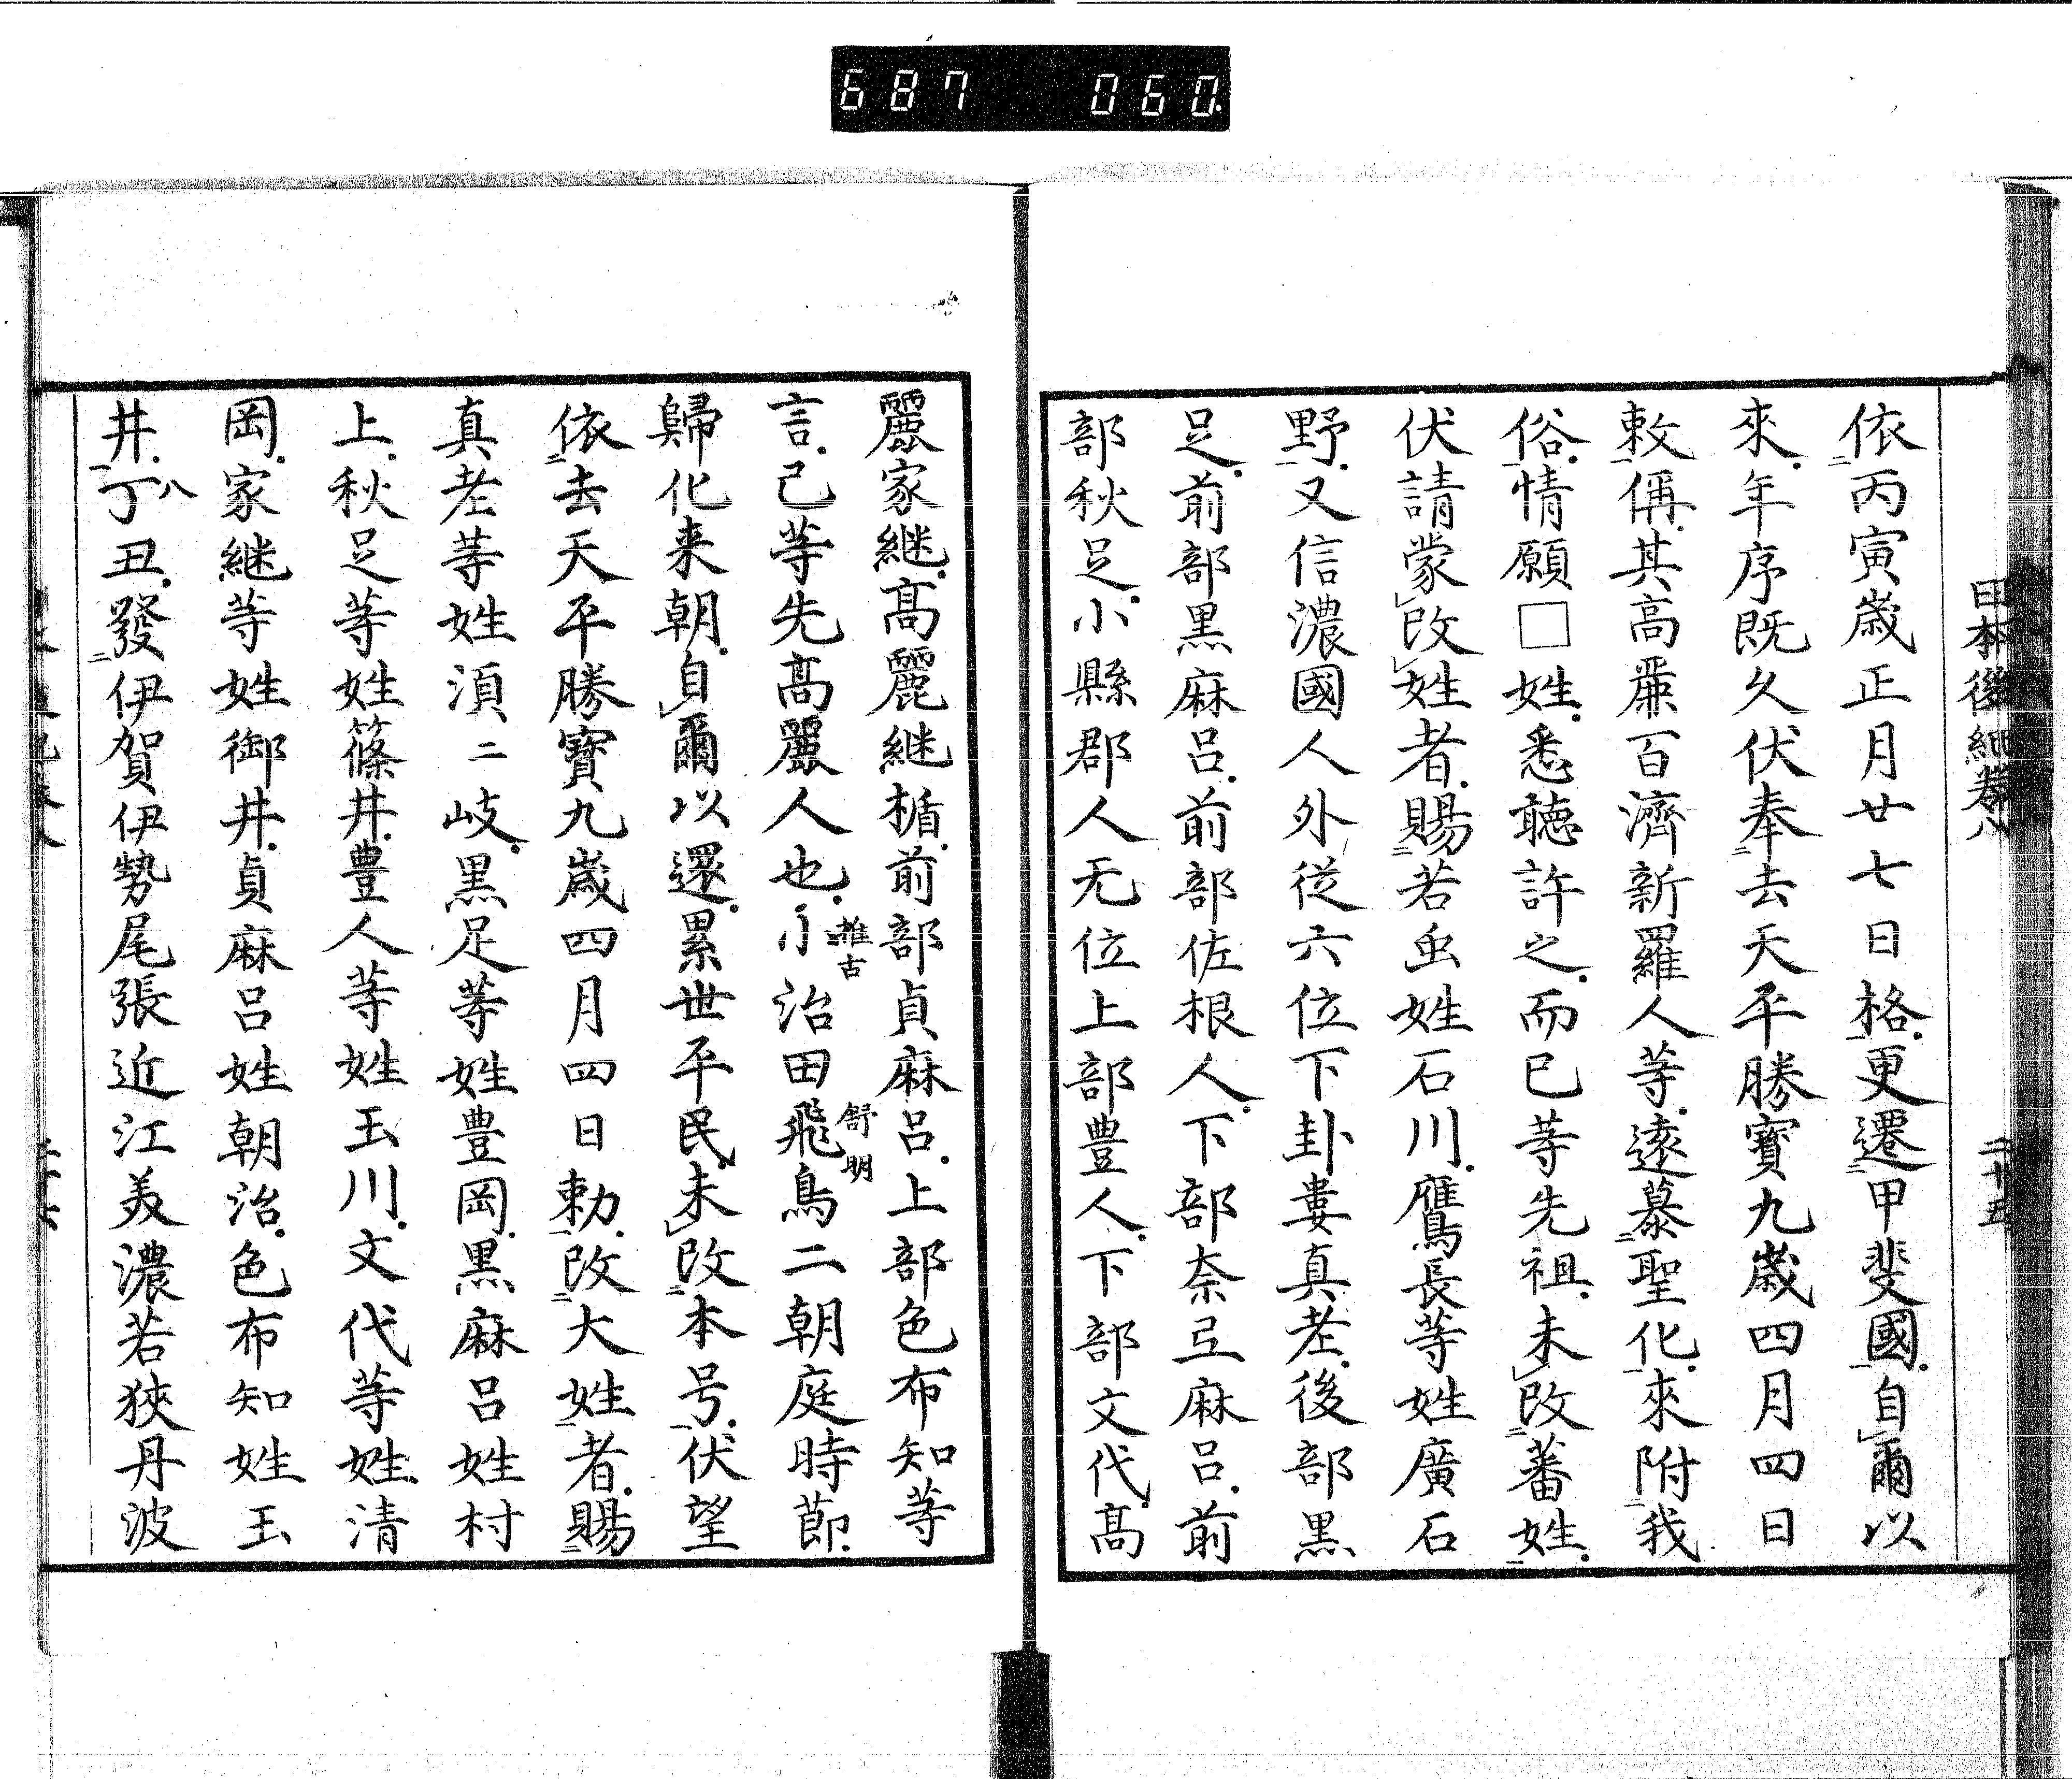 687 060
日本後紀卷八 二十五
依二丙寅歳正月廿七日格一更遷二甲斐國一自レ爾以
來年序既久伏奉二去天平勝寶九歳四月四日
敕一偁其高麗百濟新羅人等遠慕二聖化一來附二我
俗一情願□姓悉聽許之而已等先祖未レ改二蕃姓一
伏請蒙レ改レ姓者賜二若虫姓石川鷹長等姓廣石
野一又信濃國人外從六位下卦婁真老後部黒
足前部黒麻呂前部佐根人下部奈弖麻呂前
部秋足小縣郡人无位上部豊人下部文代高
麗家継高麗継楯前部貞麻呂上部色布知等
言己等先高麗人也小治田飛鳥二朝庭時節
推古 舒明
歸化来朝自レ爾以還累世平民未レ改二本号一伏望
依二去天平勝寶九歳四月四日勅一改二大姓一者賜二
真老等姓湏二岐黒足等姓豊岡黒麻呂姓村
上秋足等姓篠井豊人等姓玉川文代等姓清
岡家継等姓御井貞麻呂姓朝治色布知姓玉
井一丁丑發二伊賀伊勢尾張近江美濃若狹丹波
八